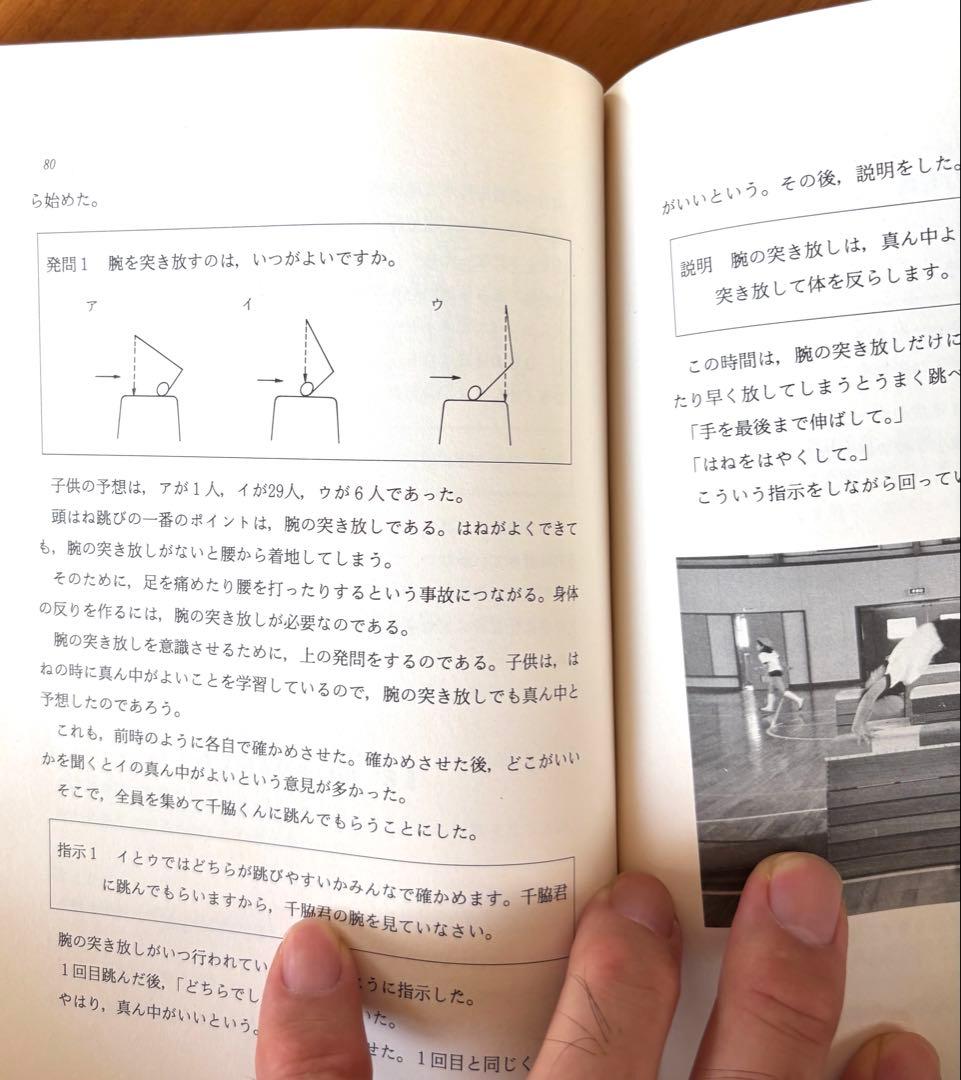 80
ら始めた。
発問1　腕を突き放すのは，いつがよいですか。
ア
イ
ウ
子供の予想は，アが1人，イが29人，ウが6人であった。
頭はね跳びの一番のポイントは，腕の突き放しである。はねがよくできて
も，腕の突き放しがないと腰から着地してしまう。
そのために，足を痛めたり腰を打ったりするという事故につながる。身体
の反りを作るには，腕の突き放しが必要なのである。
腕の突き放しを意識させるために，上の発問をするのである。子供は，は
ねの時に真ん中がよいことを学習しているので，腕の突き放しでも真ん中と
予想したのであろう。
これも，前時のように各自で確かめさせた。確かめさせた後，どこがいい
かを聞くとイの真ん中がよいという意見が多かった。
そこで，全員を集めて千脇くんに跳んでもらうことにした。
指示1　イとウではどちらが跳びやすいかみんなで確かめます。千脇君
に跳んでもらいますから，千脇君の腕を見ていなさい。
腕の突き放しがいつ行われてい
ように指示した。
1回目跳んだ後，「どちらでし
いた。
やはり，真ん中がいいという。
せた。1回目と同じく
がいいという。その後，説明をした。
説明　腕の突き放しは，真ん中よ
突き放して体を反らします。
この時間は，腕の突き放しだけに
たり早く放してしまうとうまく跳べ
「手を最後まで伸ばして。」
「はねをはやくして。」
こういう指示をしながら回ってい